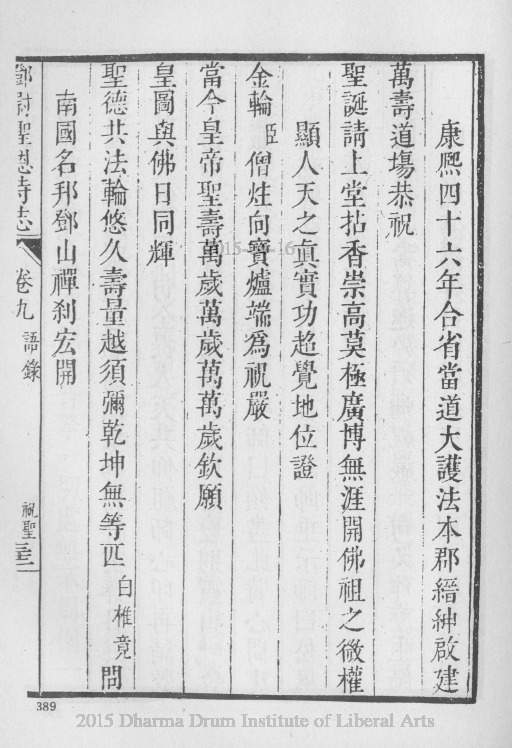 康熈四十六年合省當道大護法本郡縉紳啟建
萬壽道塲恭祝
聖誕請上堂拈香崇高莫極廣博無涯開佛祖之微權
顯人天之眞實功超覺地位證
金輪臣僧炷向寶爐端爲祝嚴
當今皇帝聖壽萬歲萬歲萬萬歲欽願
皇圖與佛日同輝
聖德共法輪悠久壽量越須彌乾坤無等匹白椎竟問
南國名邦鄧山禪刹宏開
鄧尉聖恩寺志 卷九 語錄 祝聖 三三
389
2015 Dharma Drum Institute of Liberal Arts